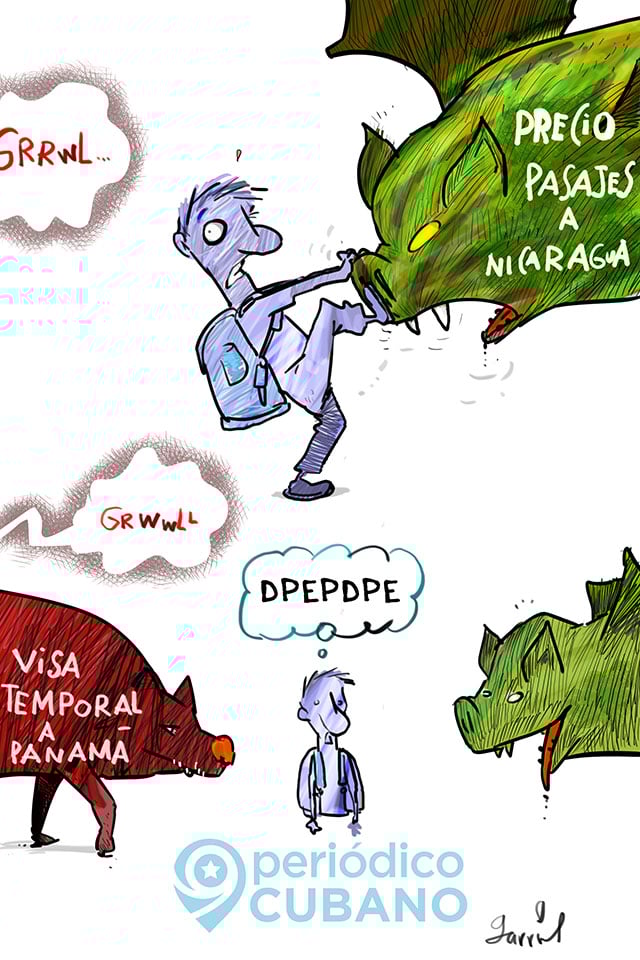 GRRWL...
PRECIO
PASAJES
A
NICARAGUA
GRWWLL
DPEPDPE
VISA
TEMPORAL
A
PANAMÁ
periódico
CUBANO